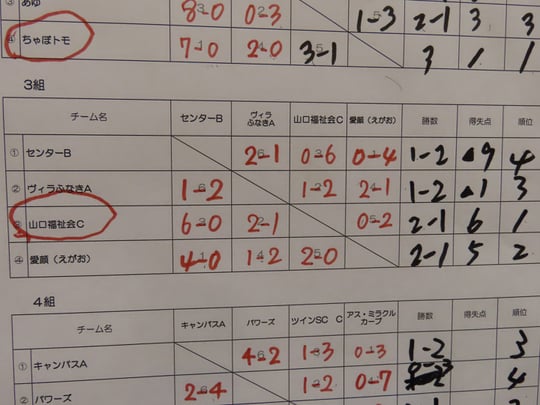 ③ あゆ 8-0 0-3 1-3 2-1 3 3
④ ちゃぼトモ 7-0 2-0 3-1 3 1 1
3組
チーム名 センターB ヴィラふなきA 山口福祉会C 愛顔(えがお) 勝数 得失点 順位
① センターB 2-1 0-6 0-4 1-2 ▲9 4
② ヴィラふなきA 1-2 1-2 2-1 1-2 ▲1 3
③ 山口福祉会C 6-0 2-1 0-2 2-1 6 1
④ 愛顔(えがお) 4-0 1-2 2-0 2-1 5 2
4組
チーム名 キャンパスA パワーズ ツインSC C アス・ミラクルカープ 勝数 得失点 順位
① キャンパスA 4-2 1-3 0-3 1-2 3
② パワーズ 2-4 1-2 0-7 0-3 4